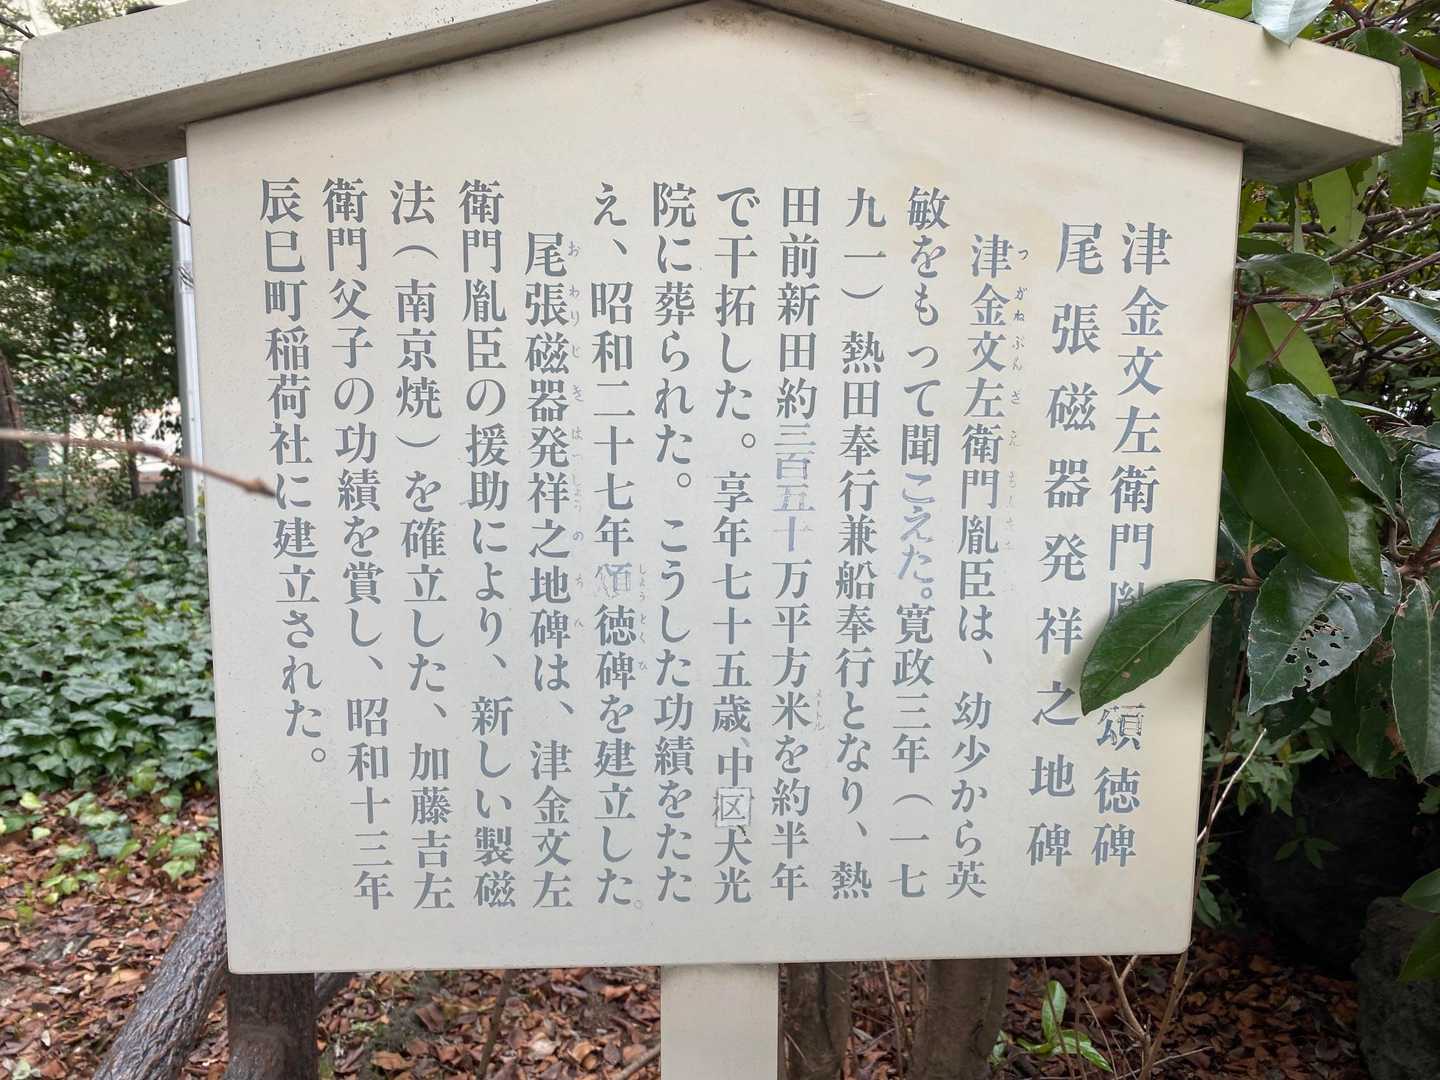 津金文左衛門胤 頌徳碑
尾張磁器発祥之地碑
津金文左衛門胤臣は、幼少から英
敏をもって聞こえた。寛政三年（一七
九一）熱田奉行兼船奉行となり、熱
田前新田約三百五十万平方米を約半年
で干拓した。享年七十五歳、中区、大光
院に葬られた。こうした功績をたた
え、昭和二十七年頌徳碑を建立した。
尾張磁器発祥之地碑は、津金文左
衛門胤臣の援助により、新しい製磁
法（南京焼）を確立した、加藤吉左
衛門父子の功績を賞し、昭和十三年
辰巳町稲荷社に建立された。